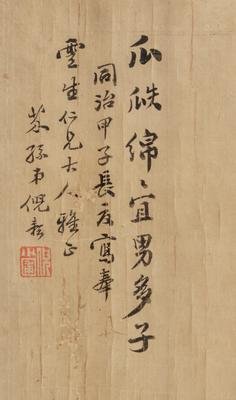 瓜瓞綿〻宜男多子
同治甲子長夏寫奉
雲生仁兄大人雅正
芥孫弟倪耘